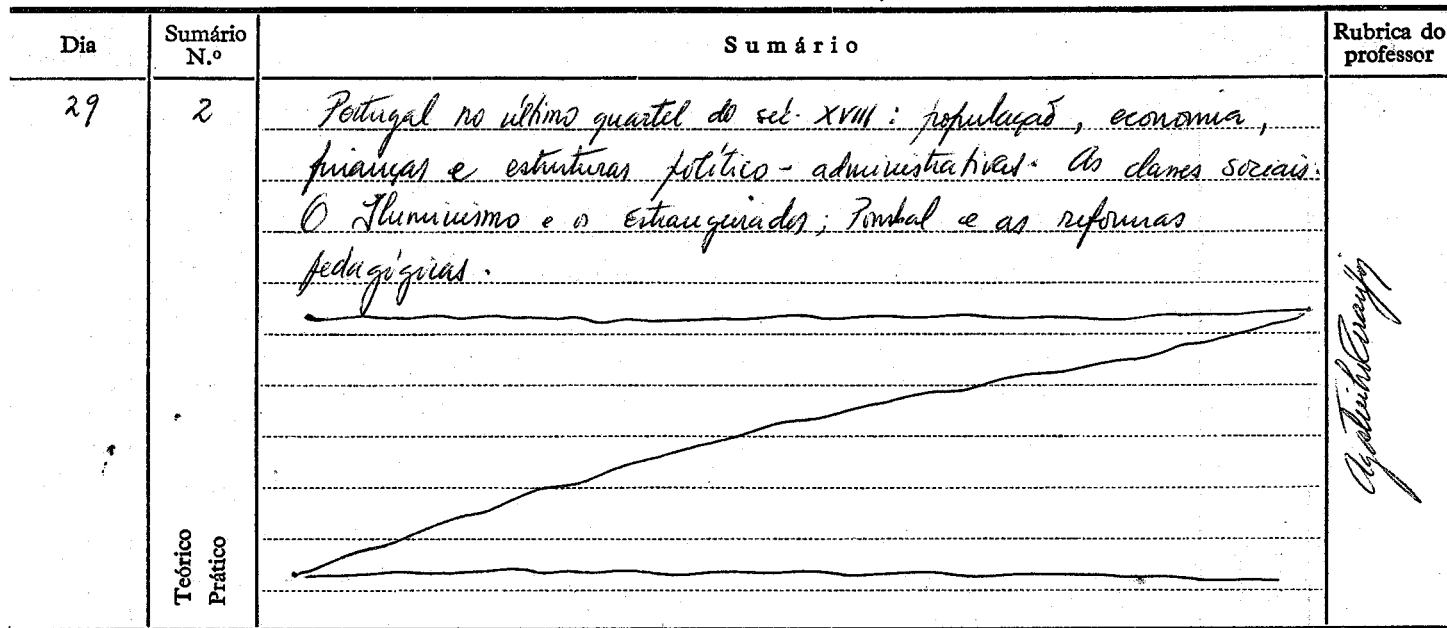 Dia
Sumário
N.º
Sumário
Rubrica do
professor
29
2
Portugal no último quartel do séc. XVIII : população, economia,
finanças e estruturas político-administrativas. As classes sociais.
O Iluminismo e os Estrangeirados; Pombal e as reformas
pedagógicas.
Teórico
Prático